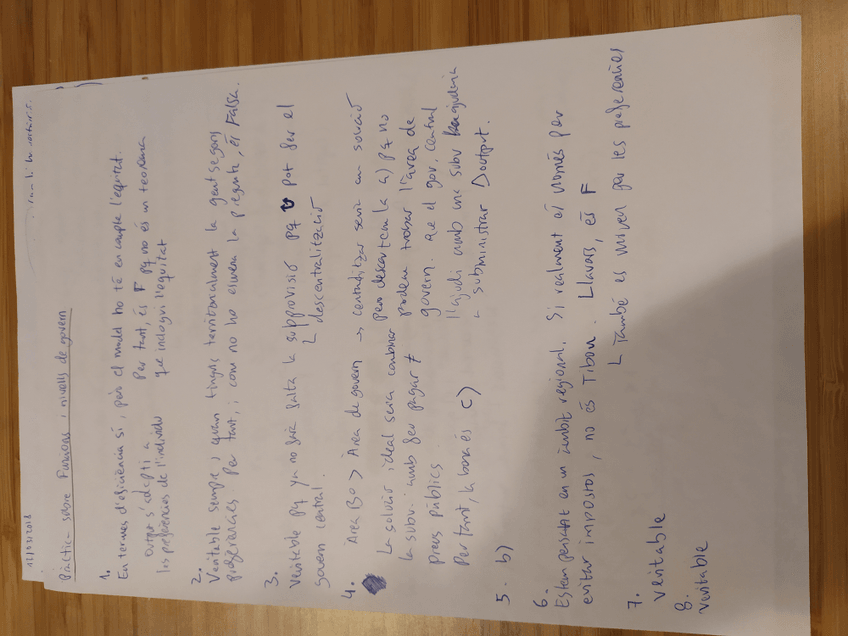 Pràctica sobre Funcions i nivells de govern
1.
En termes d'eficiència sí, però el model no té en compte l'equitat.
output s'adapti a
les preferències de l'individu
Per tant, és F pq no és un teorema
que inclogui l'equitat
2.
Veritable sempre i quan tinguis territorialment la gent segons
preferències. Per tant, i com no ho esmena la pregunta, és Falsa.
3.
Veritable pq ya no faria falta la subprovisió pq pot fer el
govern central.
↳ descentralització
4.
Àrea BO > Àrea de govern → centralitzar seria una solució
La solució ideal seria combinar
la subv. i amb fer pagar ≠
preus públics.
Per tant, la bona és c)
però descartem la a) pq no
podem trobar l'àrea de
govern. que el gov. central
l'ajudi amb una subv ajudaria
a subministrar Δoutput.
5. b)
6.
Estem pensant en un àmbit regional. Si realment és només per
evitar impostos, no és Tibou. Llavors, és F
↳ també es mouen per les preferències
7.
Veritable
8.
Veritable